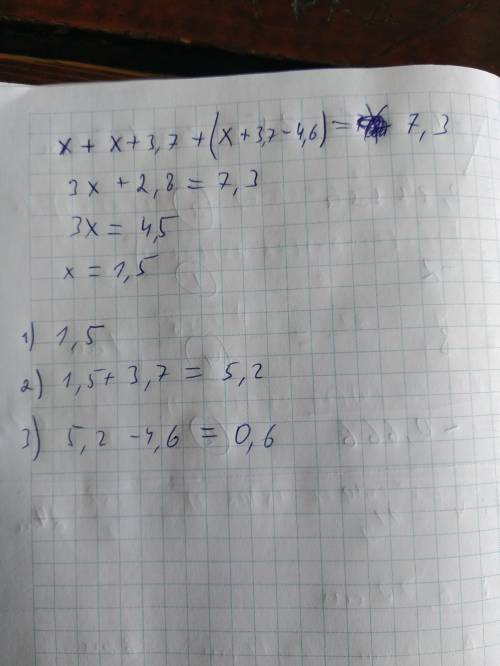 x + x + 3,7 + (x + 3,7 - 4,6) = 7,3
3x + 2,8 = 7,3
3x = 4,5
x = 1,5
1) 1,5
2) 1,5 + 3,7 = 5,2
3) 5,2 - 4,6 = 0,6